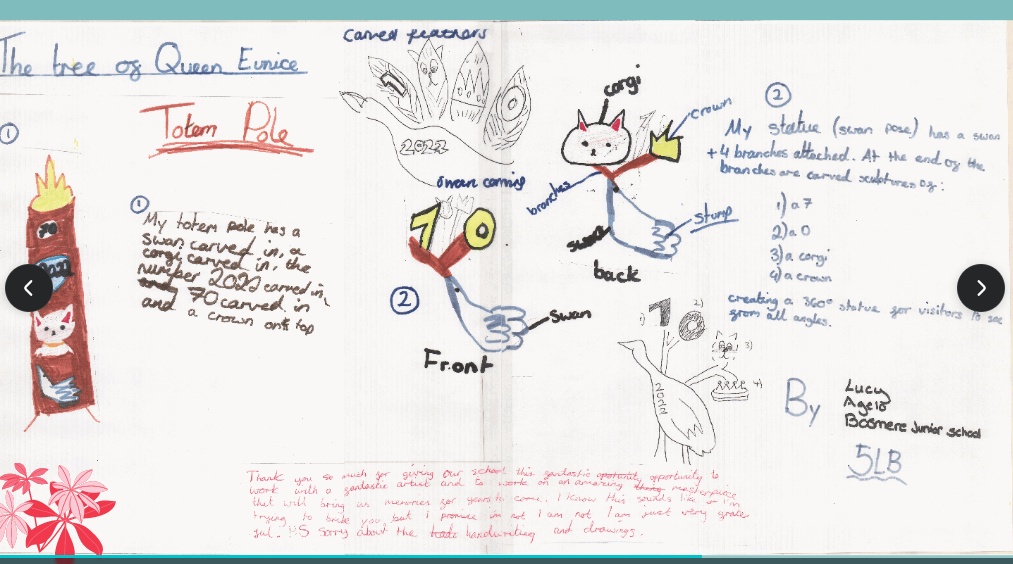 The tree of Queen Eunice
Totem Pole
1
70
2022
1
My totem pole has a
swan carved in, a
corgi carved in, the
number 2022 carved in,
and 70 carved in
and a crown on top
Carved feathers
2022
Swan carving
70
2
Swan
Front
corgi
crown
branches
stump
swan
back
2
My statue (swan pose) has a swan
+ 4 branches attached. At the end of the
branches are carved sculptures of:
1) a 7
2) a 0
3) a corgi
4) a crown
creating a 360° statue for visitors to see
from all angles.
1)
2)
3)
4)
70
2022
By
Lucy
Age 10
Bosmere Junior school
5LB
Thank you so much for giving our school this fantastic opportunity to
work with a fantastic artist and to work on an amazing masterpiece
that will bring us memories for years to come. I know this sounds like I'm
trying to bribe you, but I promise I'm not I am not I am just very grate
ful. P.S Sorry about the handwriting and drawings.